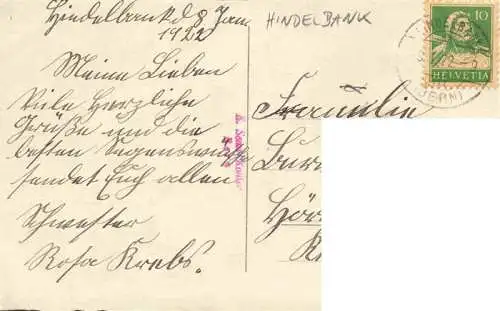 Hindelbank d 8 Jan
1922
Meine Lieben
Viele herzliche
Grüße und die
besten Segenswünsche
sendet Euch allen
Schwester
Rosa Krebs.
HINDELBANK
Familie
10
HELVETIA
(BERN)